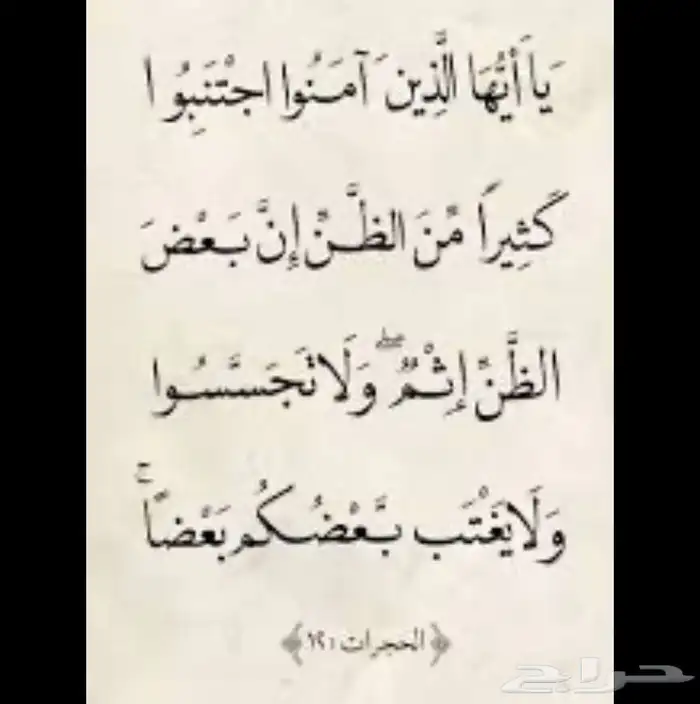 يَا أَيُّهَا الَّذِينَ آمَنُوا اجْتَنِبُوا
كَثِيرًا مِّنَ الظَّنِّ إِنَّ بَعْضَ
الظَّنِّ إِثْمٌ ۖ وَلَا تَجَسَّسُوا
وَلَا يَغْتَب بَّعْضُكُم بَعْضًا ۚ
﴿الحجرات : ١٢﴾
حراج